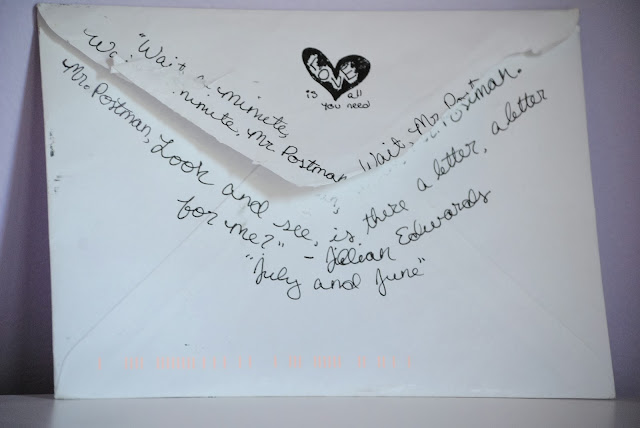 LOVE
is all
you need
"Wait a minute,
minute, Mr Postman Wait, Mr.
Mr. Postman, Look and see, is there a letter, a letter
for me?" - Jillian Edwards
"July and June"